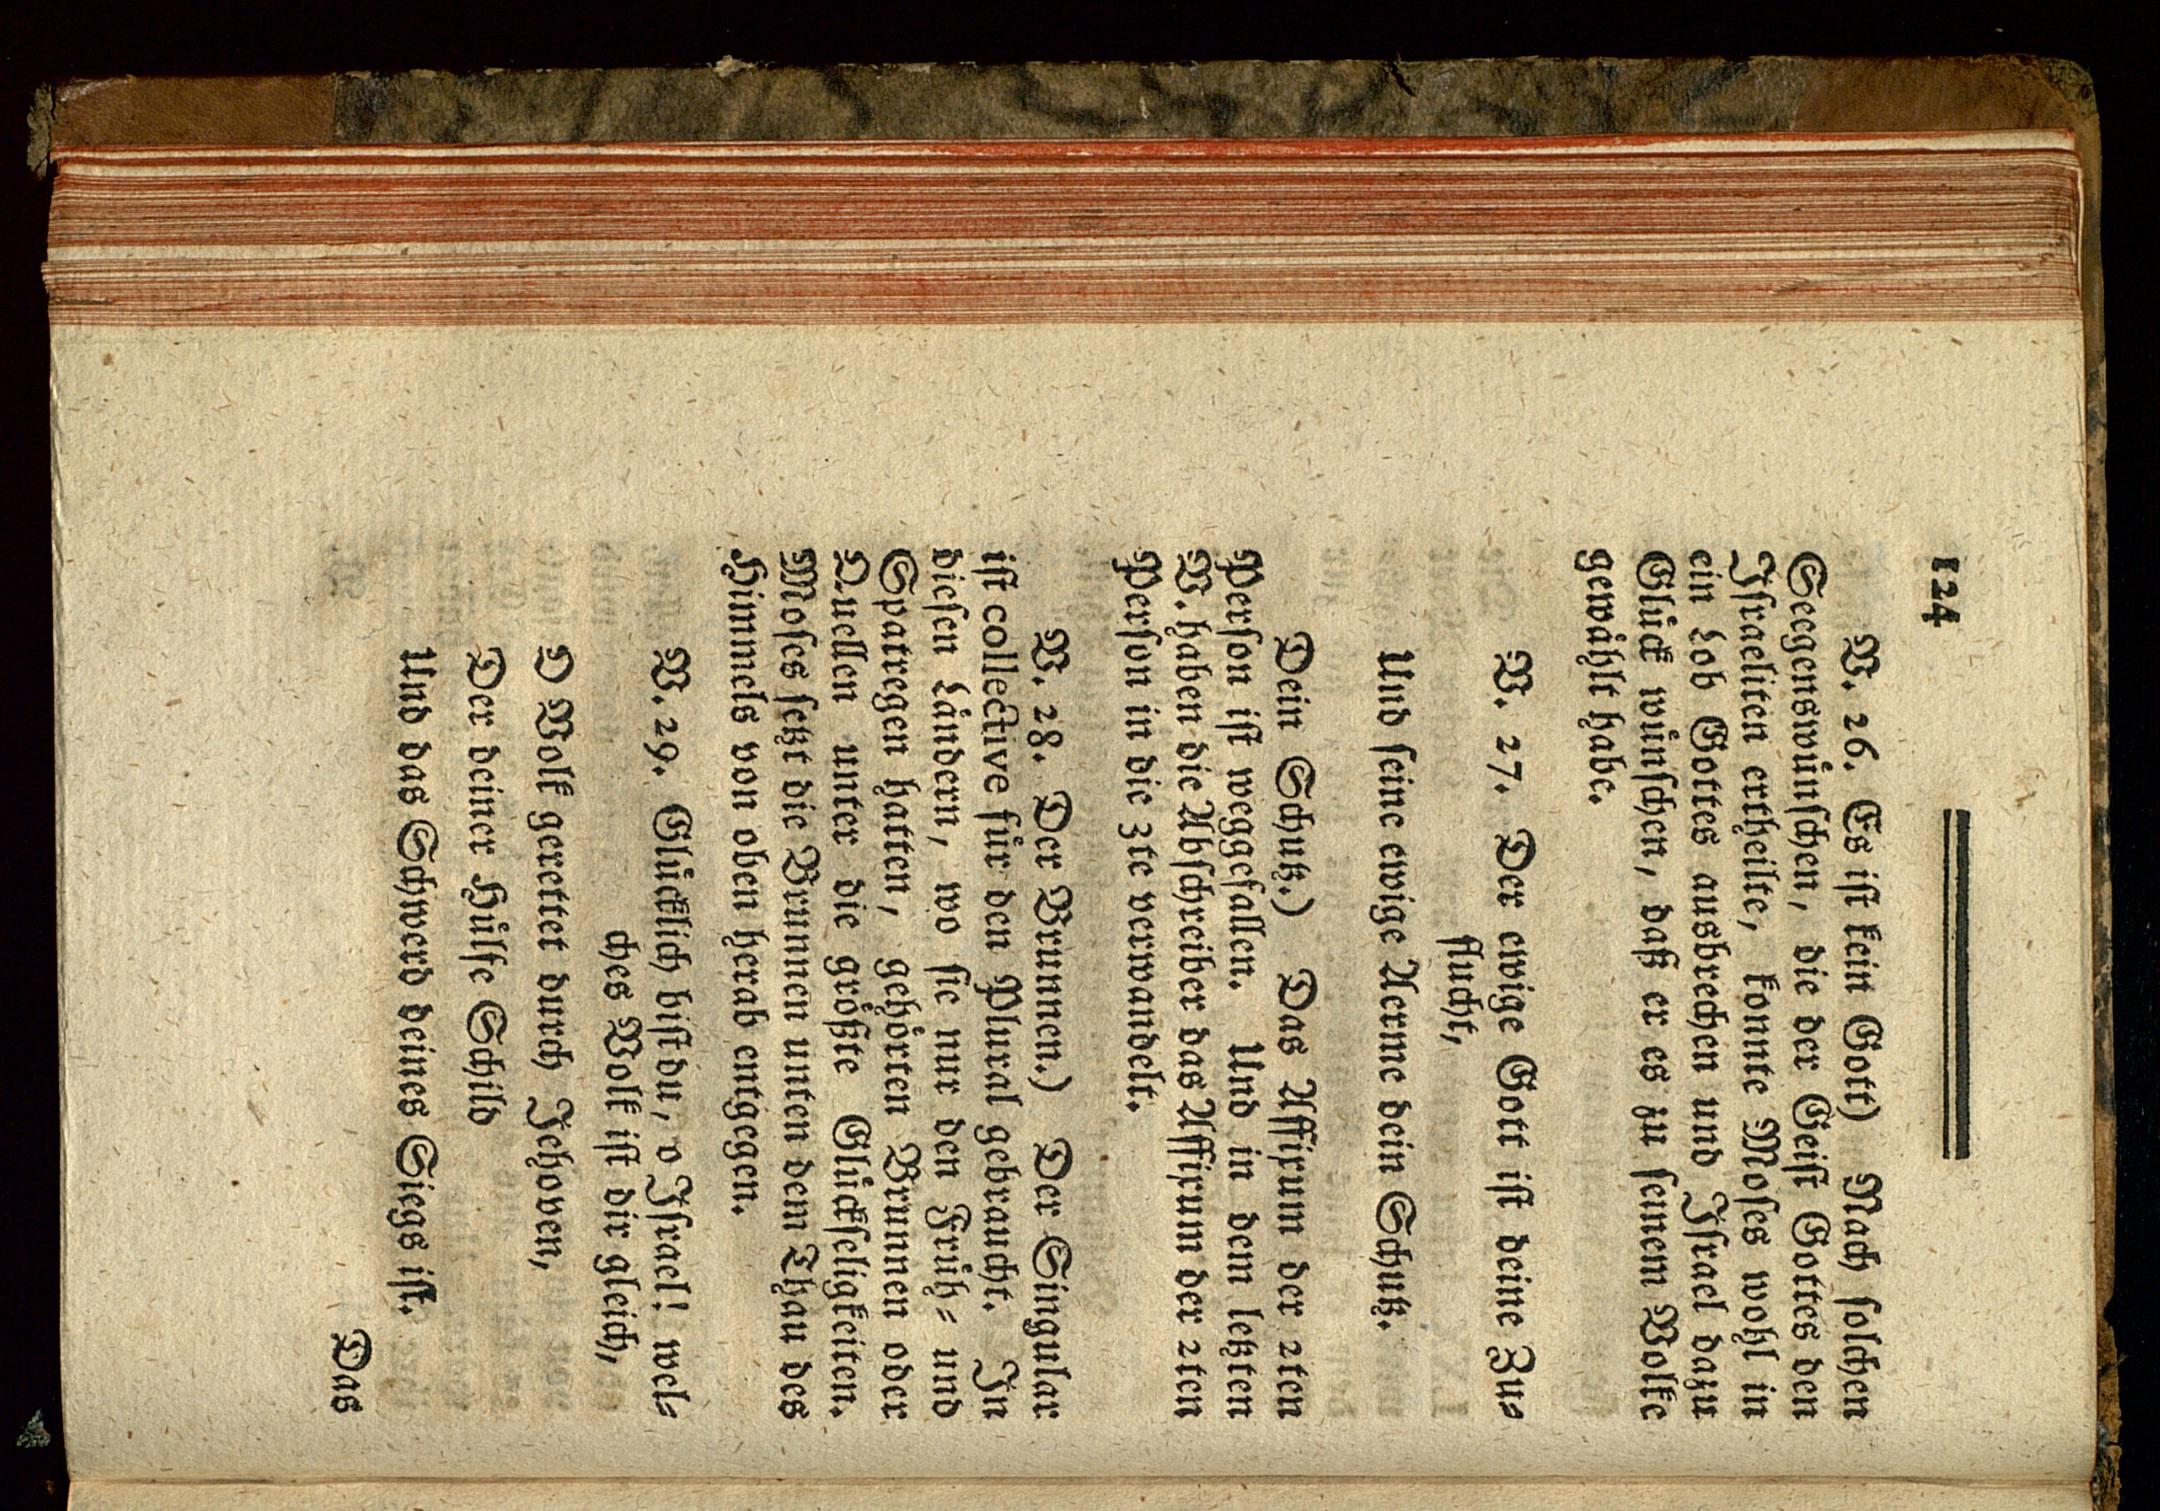 124
V. 26. Es iſt kein Gott) Nach ſolchen
Seegenswünſchen, die der Geiſt Gottes den
Iſraeliten ertheilte, konnte Moſes wohl in
ein Lob Gottes ausbrechen und Iſrael dazu
Glück wünſchen, daß er es zu ſeinem Volke
gewählt habe.
V. 27. Der ewige Gott iſt deine Zu⸗
flucht,
Und ſeine ewige Aerme dein Schutz.
Dein Schutz.) Das Affixum der 2ten
Perſon iſt weggefallen. Und in dem letzten
V. haben die Abſchreiber das Affixum der 2ten
Perſon in die 3te verwandelt.
V. 28. Der Brunnen.) Der Singular
iſt collective für den Plural gebraucht. In
dieſen Ländern, wo ſie nur den Früh⸗ und
Spatregen hatten, gehörten Brunnen oder
Quellen unter die größte Glückſeligkeiten.
Moſes ſetzt die Brunnen unten dem Thau des
Himmels von oben herab entgegen.
V. 29. Glücklich biſt du, o Iſrael! wel⸗
ches Volk iſt dir gleich,
O Volk gerettet durch Jehoven,
Der deiner Hülfe Schild
Und das Schwerd deines Siegs iſt.
Das